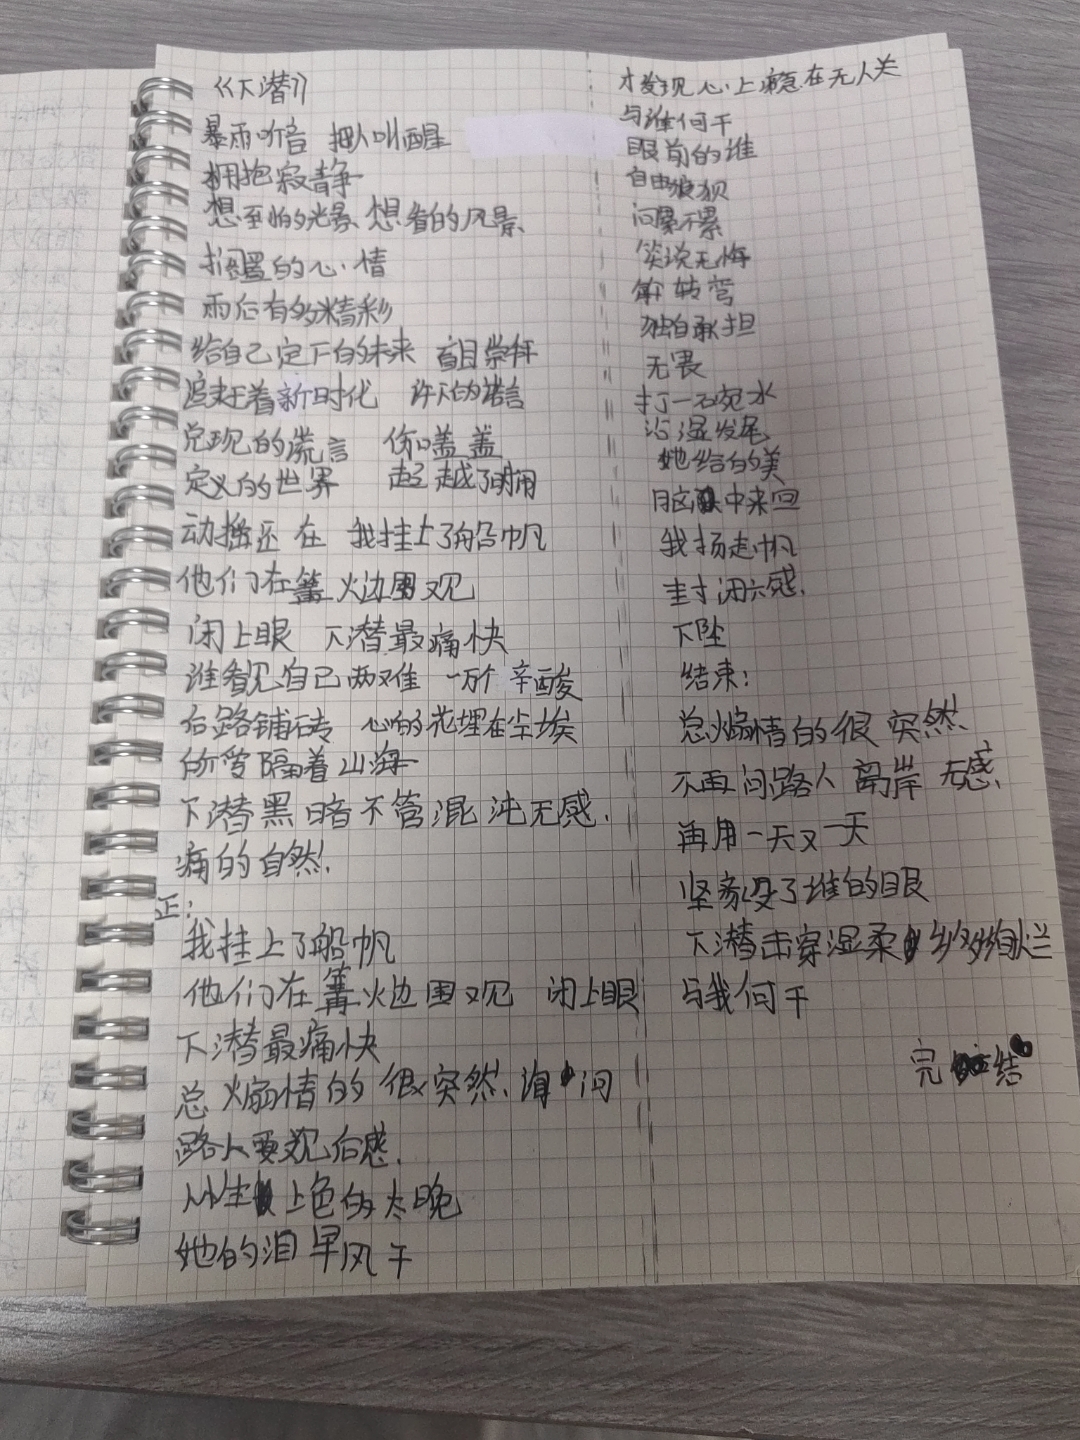 《下潜》
暴雨听音 把人叫醒
拥抱寂静
想至怕的光景 想看的风景
搁置的心情
雨后有的精彩
给自己定下的未来 盲目崇拜
追赶着新时代 许下的诺言
兑现的谎言 你
定义的世界 超越了
动摇还在 我挂上了船帆
他们在篝火边围观
闭上眼 下潜最痛快
谁看见自己两难 一万个辛酸
后路铺砖 心的花埋在尘埃
所爱隔着山海
下潜黑暗不管混沌无感.
痛的自然.
正:
我挂上了船帆
他们在篝火边围观 闭上眼
下潜最痛快
总煽情的很突然.询问
路人要观后感.
人生上色的太晚
她的泪早风干
才发现心上痕在无人关
与谁何干
眼前的谁
自由狼狈
问累不累
笑说无悔
转弯
独自承担
无畏
打一碗水
沾湿发尾
她给的美
脑中来回
我扬起帆
封闭六感.
下坠
结束:
总煽情的很突然.
不再问路人 离岸 无感.
再用一天又一天
坚毅了谁的眼
下潜击穿湿柔 绚烂
与我何干
完结